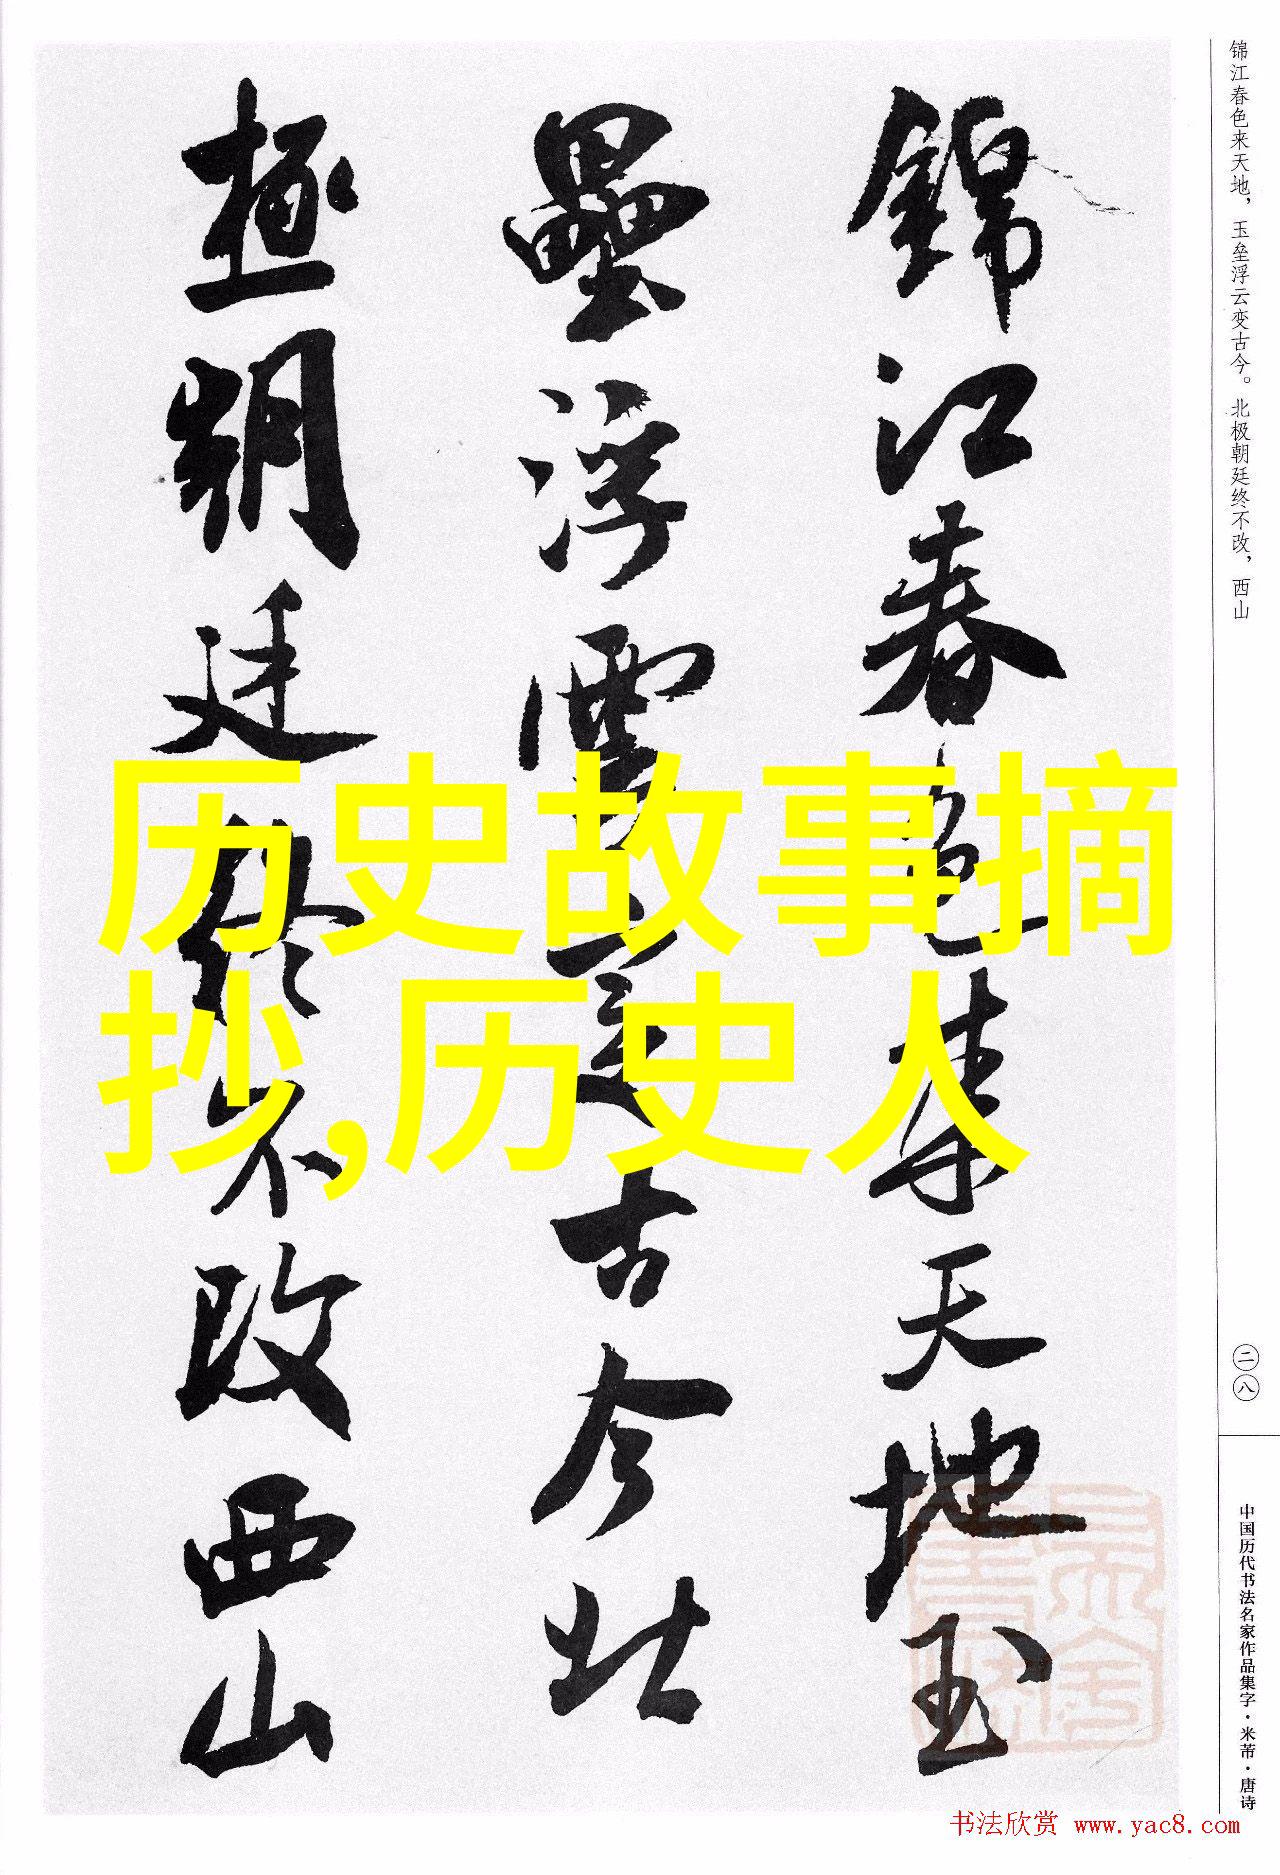 锦江春色来天地，玉垒浮云变古今。北极朝廷终不改，西山
錦江春色来天地玉
壘浮雲變古今北
極朝廷終不改西山
历史故事摘
抄,历史人
二八
中国历代书法名家作品集字·米芾·唐诗
书法欣赏 www.yac8.com